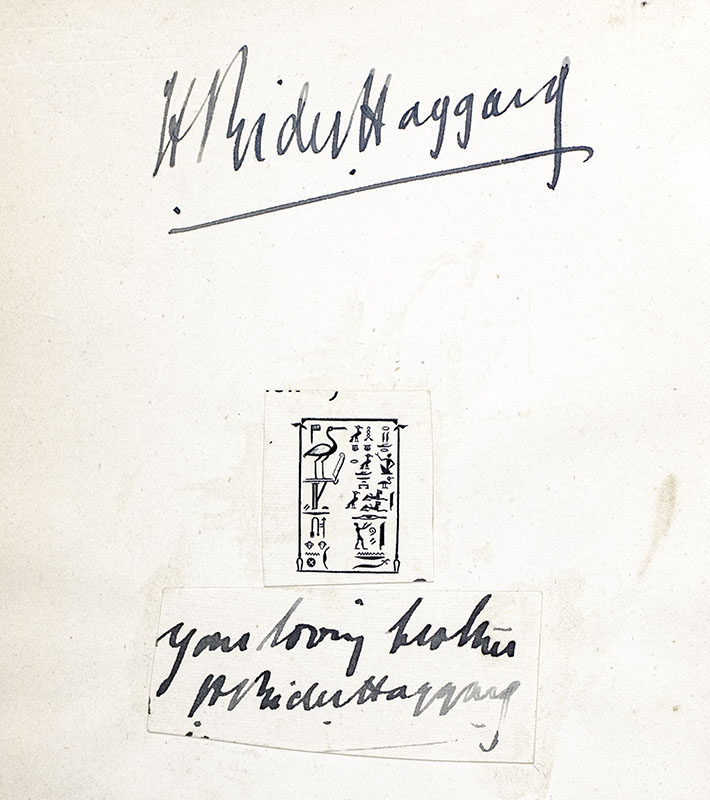 H Rider Haggard
your loving brother
H Rider Haggard